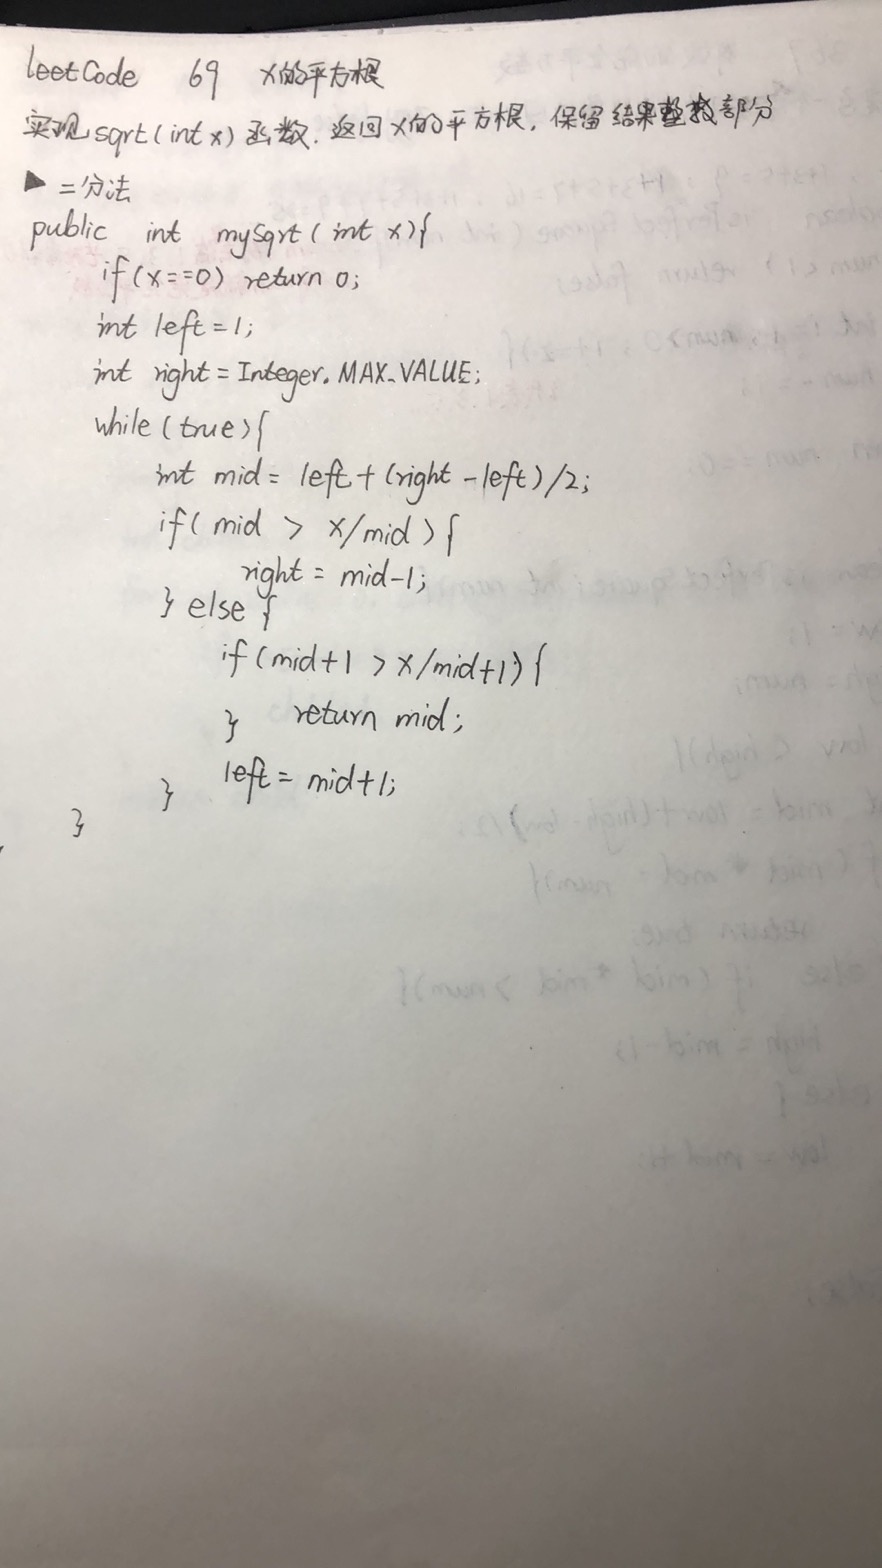 leetCode 69 x的平方根
实现sqrt(int x)函数.返回x的平方根,保留结果整数部分
▶ 二分法
public int mySqrt(int x){
if(x==0) return 0;
int left=1;
int right=Integer.MAX_VALUE;
while(true){
int mid= left+(right-left)/2;
if(mid > x/mid){
right = mid-1;
} else {
if(mid+1 > x/mid+1){
return mid;
}
left= mid+1;
}
}